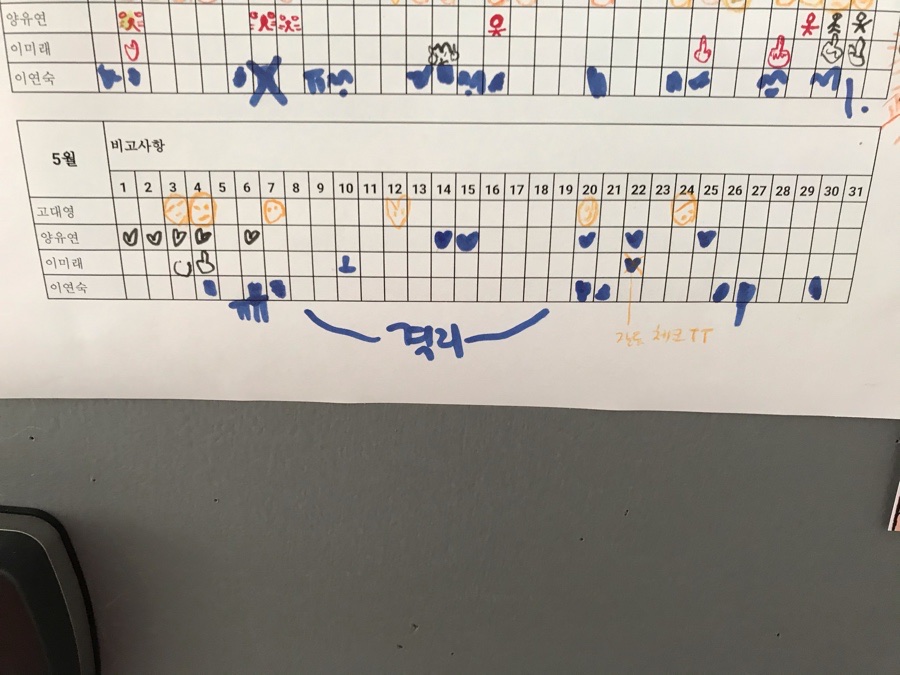 양유연
이미래
이연숙
5월
비고사항
1 2 3 4 5 6 7 8 9 10 11 12 13 14 15 16 17 18 19 20 21 22 23 24 25 26 27 28 29 30 31
고대영
양유연
이미래
이연숙
격리
체크 TT